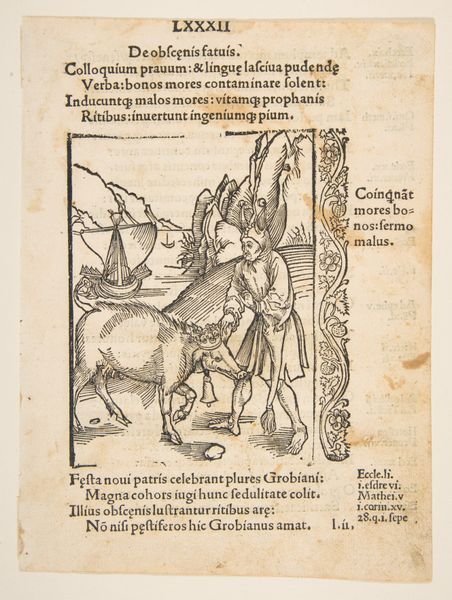 LXXXII
De obscęnis fatuis.
Colloquium prauum: & linguę lasciua pudendę
Verba: bonos mores contaminare solent:
Inducuntqȝ malos mores: vitamqȝ prophanis
Ritibus: inuertunt ingeniumqȝ pium.
Coinqnāt
mores bo-
nos: sermo
malus.
Fęsta noui patris celebrant plures Grobiani:
Magna cohors iugi hunc sedulitate colit.
Illius obscęnis lustrantur ritibus arę:
Nō nisi pęstiferos hic Grobianus amat.
l.ii.
Eccle.li.
i.esdre vi.
Mathei.v
i.corin.xv.
28.q.1.sepe